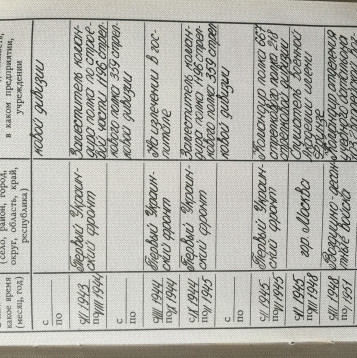 какое время
(месяц, год)
(село, район, город,
округ, область, край,
республика)
в каком предприятии,
учреждении
с
по
ковой дивизии
с VI 1943
по VIII 1944
Первый Украин-
ский фронт
Заместитель коман-
дира полка по строе-
вой части 1196 стрел-
кового полка 359 стрел-
ковой дивизии
с
по
с VIII 1944
по IX 1944
Первый Украин-
ский фронт
На излечении в гос-
питале
с IX 1944
по VI 1945
Первый Украин-
ский фронт
Заместитель коман-
дира полка 1196 стрел-
кового полка 359 стрел-
ковой дивизии
с
по
с VI 1945
по VI 1945
Первый Украин-
ский фронт
Командир полка 667
стрелкового полка 218
стрелковой дивизии
с VI 1945
по VI 1948
гор. Москва
Слушатель военной
академии имени
Фрунзе
с VI 1948
по 1951
Воздушно-десант-
ные войска
Командир отдельного
учебного батальона